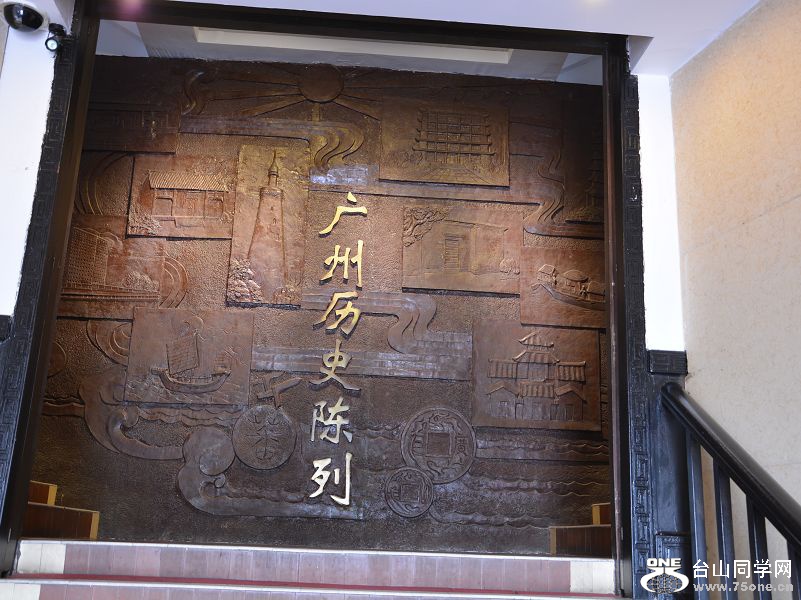 广州历史陈列
ONE
台山同学网
www.75one.com